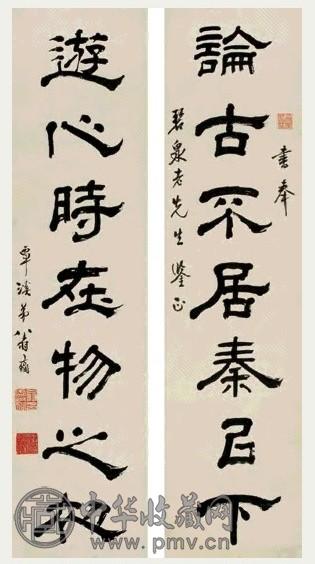 論古不居秦㠯下
書奉
碧泉老先生鑒正
遊心時在物之初
覃溪弟
中华收藏网
www.pmv.cn